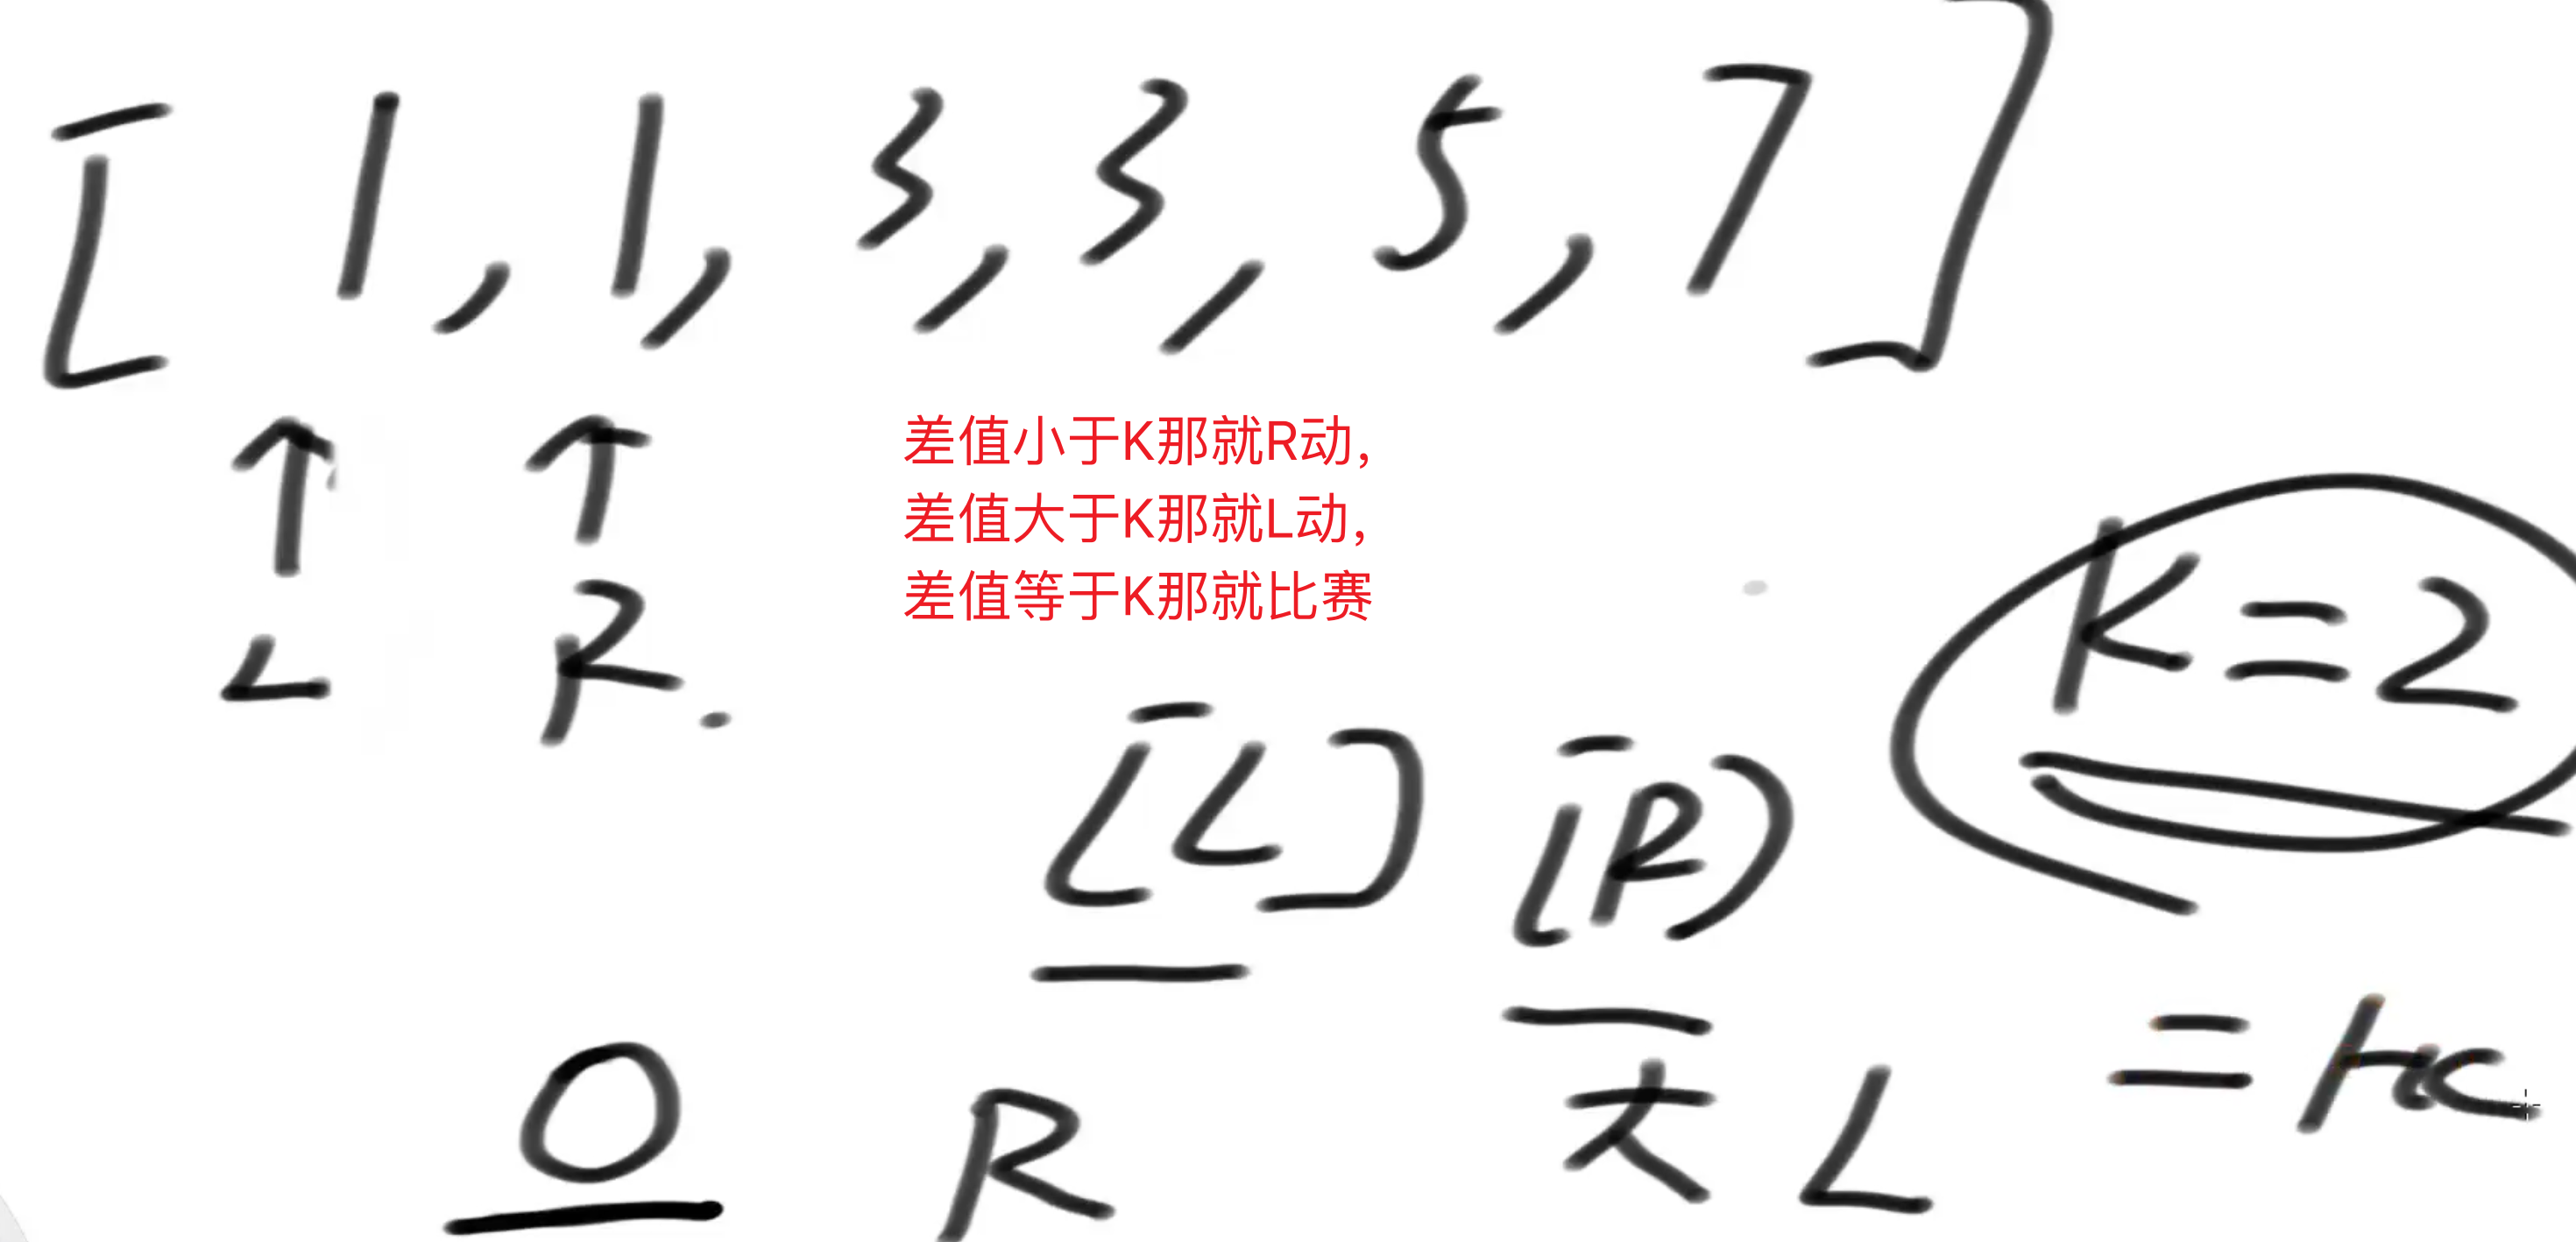 [ 1, 1, 3, 3, 5, 7 ]
差值小于K那就R动，
差值大于K那就L动，
差值等于K那就比赛
K=2
L R.
[L] [R)
0 R 大 L = 比